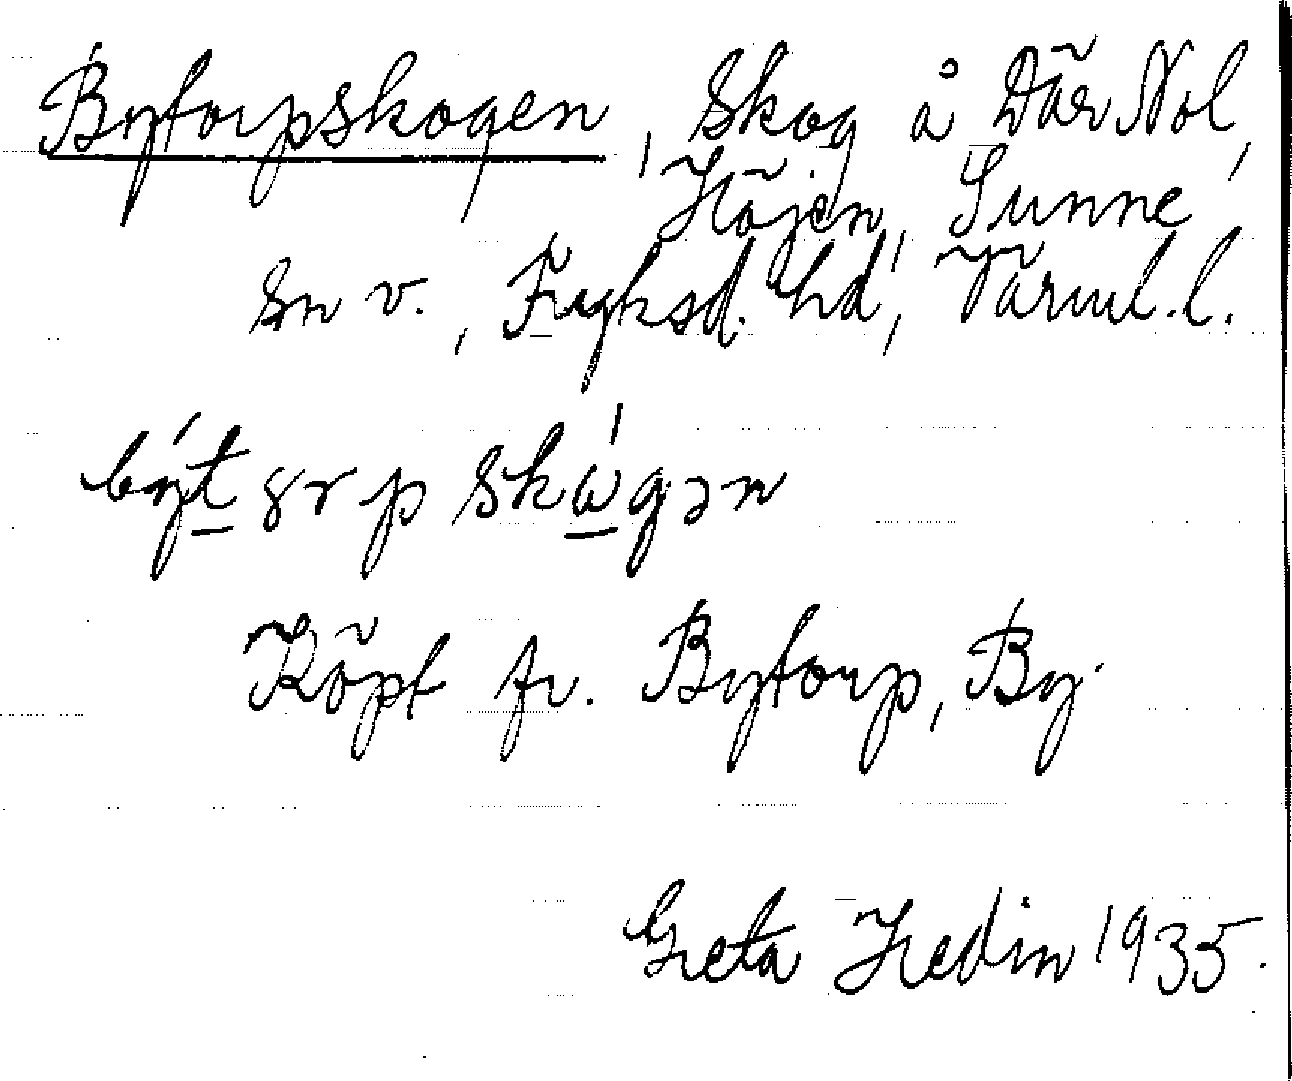 Bytorpskogen, Skog å Där Nol,
Höjen, Sunne
sn v., Fryksd. hd, Värml. l.
býtɤrpskὼgən
Köpt fr. Bytorp, By.
Greta Hedin 1935.